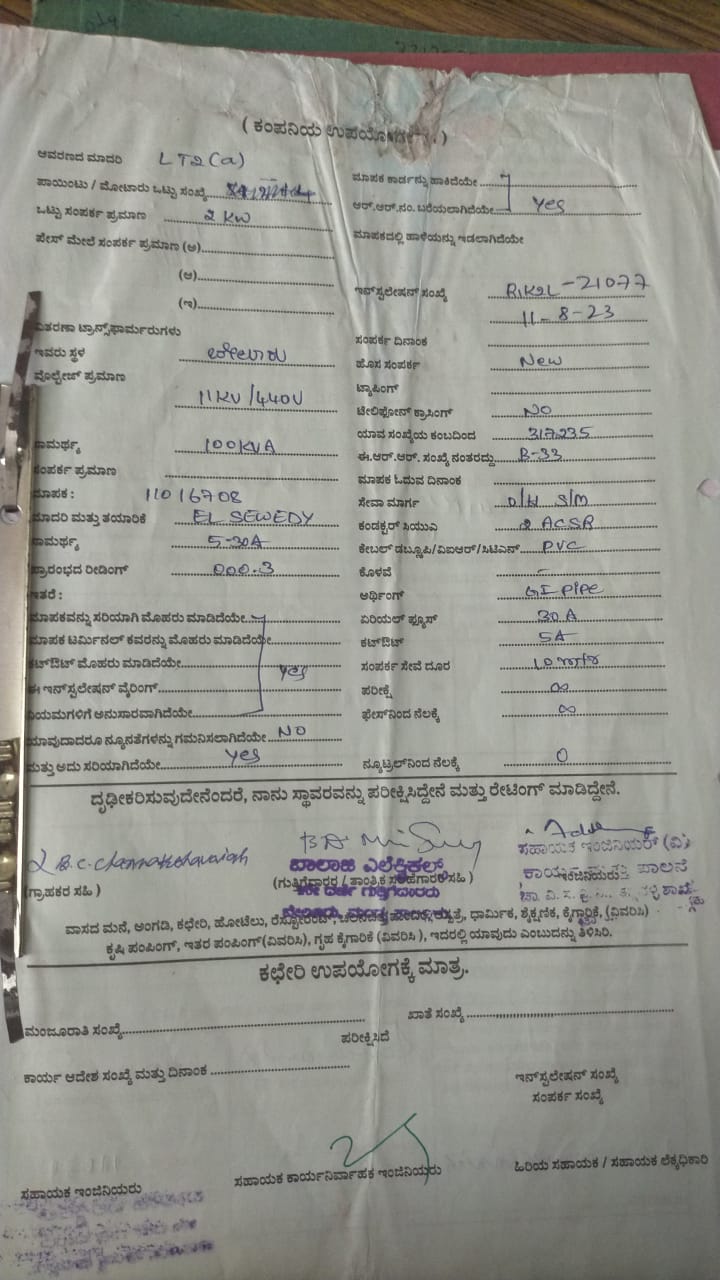 ( ಕಂಪನಿಯ ಉಪಯೋಗಕ್ಕೆ )
ಆವರಣದ ಮಾದರಿ LT2(a)
ಪಾಯಿಂಟು / ಮೋಟಾರು ಒಟ್ಟು ಸಂಖ್ಯೆ
ಒಟ್ಟು ಸಂಪರ್ಕ ಪ್ರಮಾಣ 2 KW
ಫೇಸ್ ಮೇಲೆ ಸಂಪರ್ಕ ಪ್ರಮಾಣ (ಅ)
(ಆ)
(ಇ)
ವಿತರಣಾ ಟ್ರಾನ್ಸ್‌ಫಾರ್ಮರುಗಳು
ಇವರು ಸ್ಥಳ ಬೇಲೂರು
ವೋಲ್ಟೇಜ್ ಪ್ರಮಾಣ
11KV/440V
ಸಾಮರ್ಥ್ಯ 100KVA
ಸಂಪರ್ಕ ಪ್ರಮಾಣ
ಮಾಪಕ : 11016708
ಮಾದರಿ ಮತ್ತು ತಯಾರಿಕೆ EL SEWEDY
ಸಾಮರ್ಥ್ಯ 5-30A
ಪ್ರಾರಂಭದ ರೀಡಿಂಗ್ 000.3
ಇತರೆ :
ಮಾಪಕವನ್ನು ಸರಿಯಾಗಿ ಮೊಹರು ಮಾಡಿದೆಯೇ
ಮಾಪಕ ಟರ್ಮಿನಲ್ ಕವರನ್ನು ಮೊಹರು ಮಾಡಿದೆಯೇ
ಕಟ್‌ಔಟ್ ಮೊಹರು ಮಾಡಿದೆಯೇ yes
ಈ ಇನ್‌ಸ್ಟಲೇಷನ್ ವೈರಿಂಗ್
ನಿಯಮಗಳಿಗೆ ಅನುಸಾರವಾಗಿದೆಯೇ
ಯಾವುದಾದರೂ ನ್ಯೂನತೆಗಳನ್ನು ಗಮನಿಸಲಾಗಿದೆಯೇ NO
ಮತ್ತು ಅದು ಸರಿಯಾಗಿದೆಯೇ yes
ಮಾಪಕ ಕಾರ್ಡನ್ನು ಹಾಕಿದೆಯೇ
ಆರ್.ಆರ್.ನಂ. ಬರೆಯಲಾಗಿದೆಯೇ yes
ಮಾಪಕದಲ್ಲಿ ಹಾಳೆಯನ್ನು ಇಡಲಾಗಿದೆಯೇ
ಇನ್‌ಸ್ಟಲೇಷನ್ ಸಂಖ್ಯೆ RK2L-21077
11-8-23
ಸಂಪರ್ಕ ದಿನಾಂಕ
ಹೊಸ ಸಂಪರ್ಕ New
ಟ್ಯಾಪಿಂಗ್
ಟೆಲಿಫೋನ್ ಕ್ರಾಸಿಂಗ್ NO
ಯಾವ ಸಂಖ್ಯೆಯ ಕಂಬದಿಂದ 317235
ಈ.ಆರ್.ಆರ್. ಸಂಖ್ಯೆ ನಂತರದ್ದು B-33
ಮಾಪಕ ಓದುವ ದಿನಾಂಕ
ಸೇವಾ ಮಾರ್ಗ O/H S/M
ಕಂಡಕ್ಟರ್ ಸಿಯುಎ 2 ACSR
ಕೇಬಲ್ ಡಬ್ಲೂಪಿ/ವಿಐಆರ್/ಸಿಟಿಎಸ್ PVC
ಕೊಳವೆ -
ಅರ್ಥಿಂಗ್ GI PIPE
ಏರಿಯಲ್ ಫ್ಯೂಸ್ 30 A
ಕಟ್‌ಔಟ್ 5A
ಸಂಪರ್ಕ ಸೇವೆ ದೂರ 10 mtr
ಪರೀಕ್ಷೆ ∞
ಫೇಸ್‌ನಿಂದ ನೆಲಕ್ಕೆ ∞
ನ್ಯೂಟ್ರಲ್‌ನಿಂದ ನೆಲಕ್ಕೆ 0
ದೃಢೀಕರಿಸುವುದೇನೆಂದರೆ, ನಾನು ಸ್ಥಾವರವನ್ನು ಪರೀಕ್ಷಿಸಿದ್ದೇನೆ ಮತ್ತು ರೇಟಿಂಗ್ ಮಾಡಿದ್ದೇನೆ.
ಸಹಾಯಕ ಇಂಜಿನಿಯರ್ (ವಿ)
ಬಾಲಾಜಿ ಎಲೆಕ್ಟ್ರಿಕಲ್ಸ್
(ಗ್ರಾಹಕರ ಸಹಿ ) (ಗುತ್ತಿಗೆದಾರರ / ತಾಂತ್ರಿಕ ಸಹಿ )
ವಾಸದ ಮನೆ, ಅಂಗಡಿ, ಕಛೇರಿ, ಹೋಟೆಲು, ರೆಸ್ಟೋರೆಂಟ್, ಧಾರ್ಮಿಕ, ಶೈಕ್ಷಣಿಕ, ಕೈಗಾರಿಕೆ, (ವಿವರಿಸಿ)
ಕೃಷಿ ಪಂಪಿಂಗ್, ಇತರ ಪಂಪಿಂಗ್(ವಿವರಿಸಿ), ಗೃಹ ಕೈಗಾರಿಕೆ (ವಿವರಿಸಿ ), ಇದರಲ್ಲಿ ಯಾವುದು ಎಂಬುದನ್ನು ತಿಳಿಸಿರಿ.
ಕಛೇರಿ ಉಪಯೋಗಕ್ಕೆ ಮಾತ್ರ.
ಮಂಜೂರಾತಿ ಸಂಖ್ಯೆ ಖಾತೆ ಸಂಖ್ಯೆ
ಪರೀಕ್ಷಿಸಿದೆ
ಕಾರ್ಯ ಆದೇಶ ಸಂಖ್ಯೆ ಮತ್ತು ದಿನಾಂಕ
ಇನ್‌ಸ್ಟಲೇಷನ್ ಸಂಖ್ಯೆ
ಸಂಪರ್ಕ ಸಂಖ್ಯೆ
ಸಹಾಯಕ ಇಂಜಿನಿಯರು ಸಹಾಯಕ ಕಾರ್ಯನಿರ್ವಾಹಕ ಇಂಜಿನಿಯರು ಹಿರಿಯ ಸಹಾಯಕ / ಸಹಾಯಕ ಲೆಕ್ಕಾಧಿಕಾರಿ